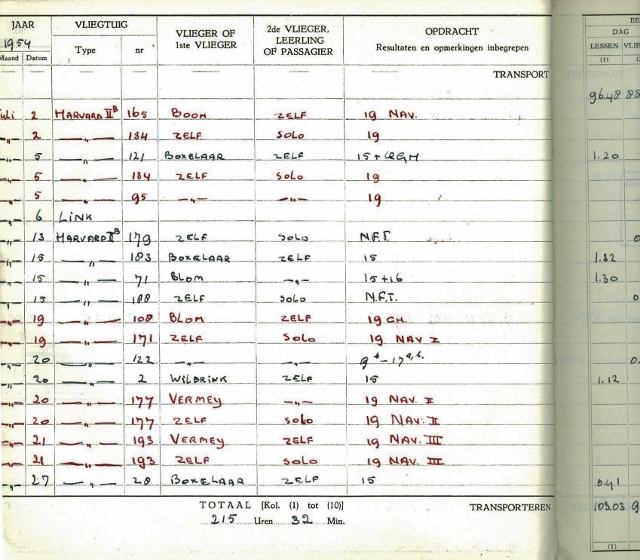 JAAR VLIEGTUIG VLIEGER OF 1ste VLIEGER 2de VLIEGER, LEERLING OF PASSAGIER OPDRACHT
1954 Type nr Resultaten en opmerkingen inbegrepen DAG
Maand Datum LESSEN
(1)
TRANSPORT
96.48
2 HARVARD IIB 165 BOOM ZELF 19 NAV.
2 —„— 184 ZELF SOLO 19
5 —„— 121 BOXELAAR ZELF 15+QGH 1.20
5 —„— 184 ZELF SOLO 19
5 —„— 95 —„— —„— 19
6 LINK
13 HARVARD IIB 179 ZELF SOLO N.F.T.
15 —„— 183 BOXELAAR ZELF 15 1.32
15 —„— 71 BLOM —„— 15+16 1.30
15 —„— 188 ZELF SOLO N.F.T.
19 —„— 108 BLOM ZELF 19 CH.
19 —„— 171 ZELF SOLO 19 NAV I
20 —„— 122 —„— —„—
20 —„— 2 WILBRINK ZELF 15 1.12
20 —„— 177 VERMEY —„— 19 NAV. II
20 —„— 177 ZELF SOLO 19 NAV. II
21 —„— 193 VERMEY ZELF 19 NAV. III
21 —„— 193 ZELF SOLO 19 NAV. III
27 —„— 28 BOXELAAR ZELF 15 0.41
TOTAAL [Kol. (1) tot (10)] TRANSPORTEREN 103.03
215 Uren 32 Min.
(1)